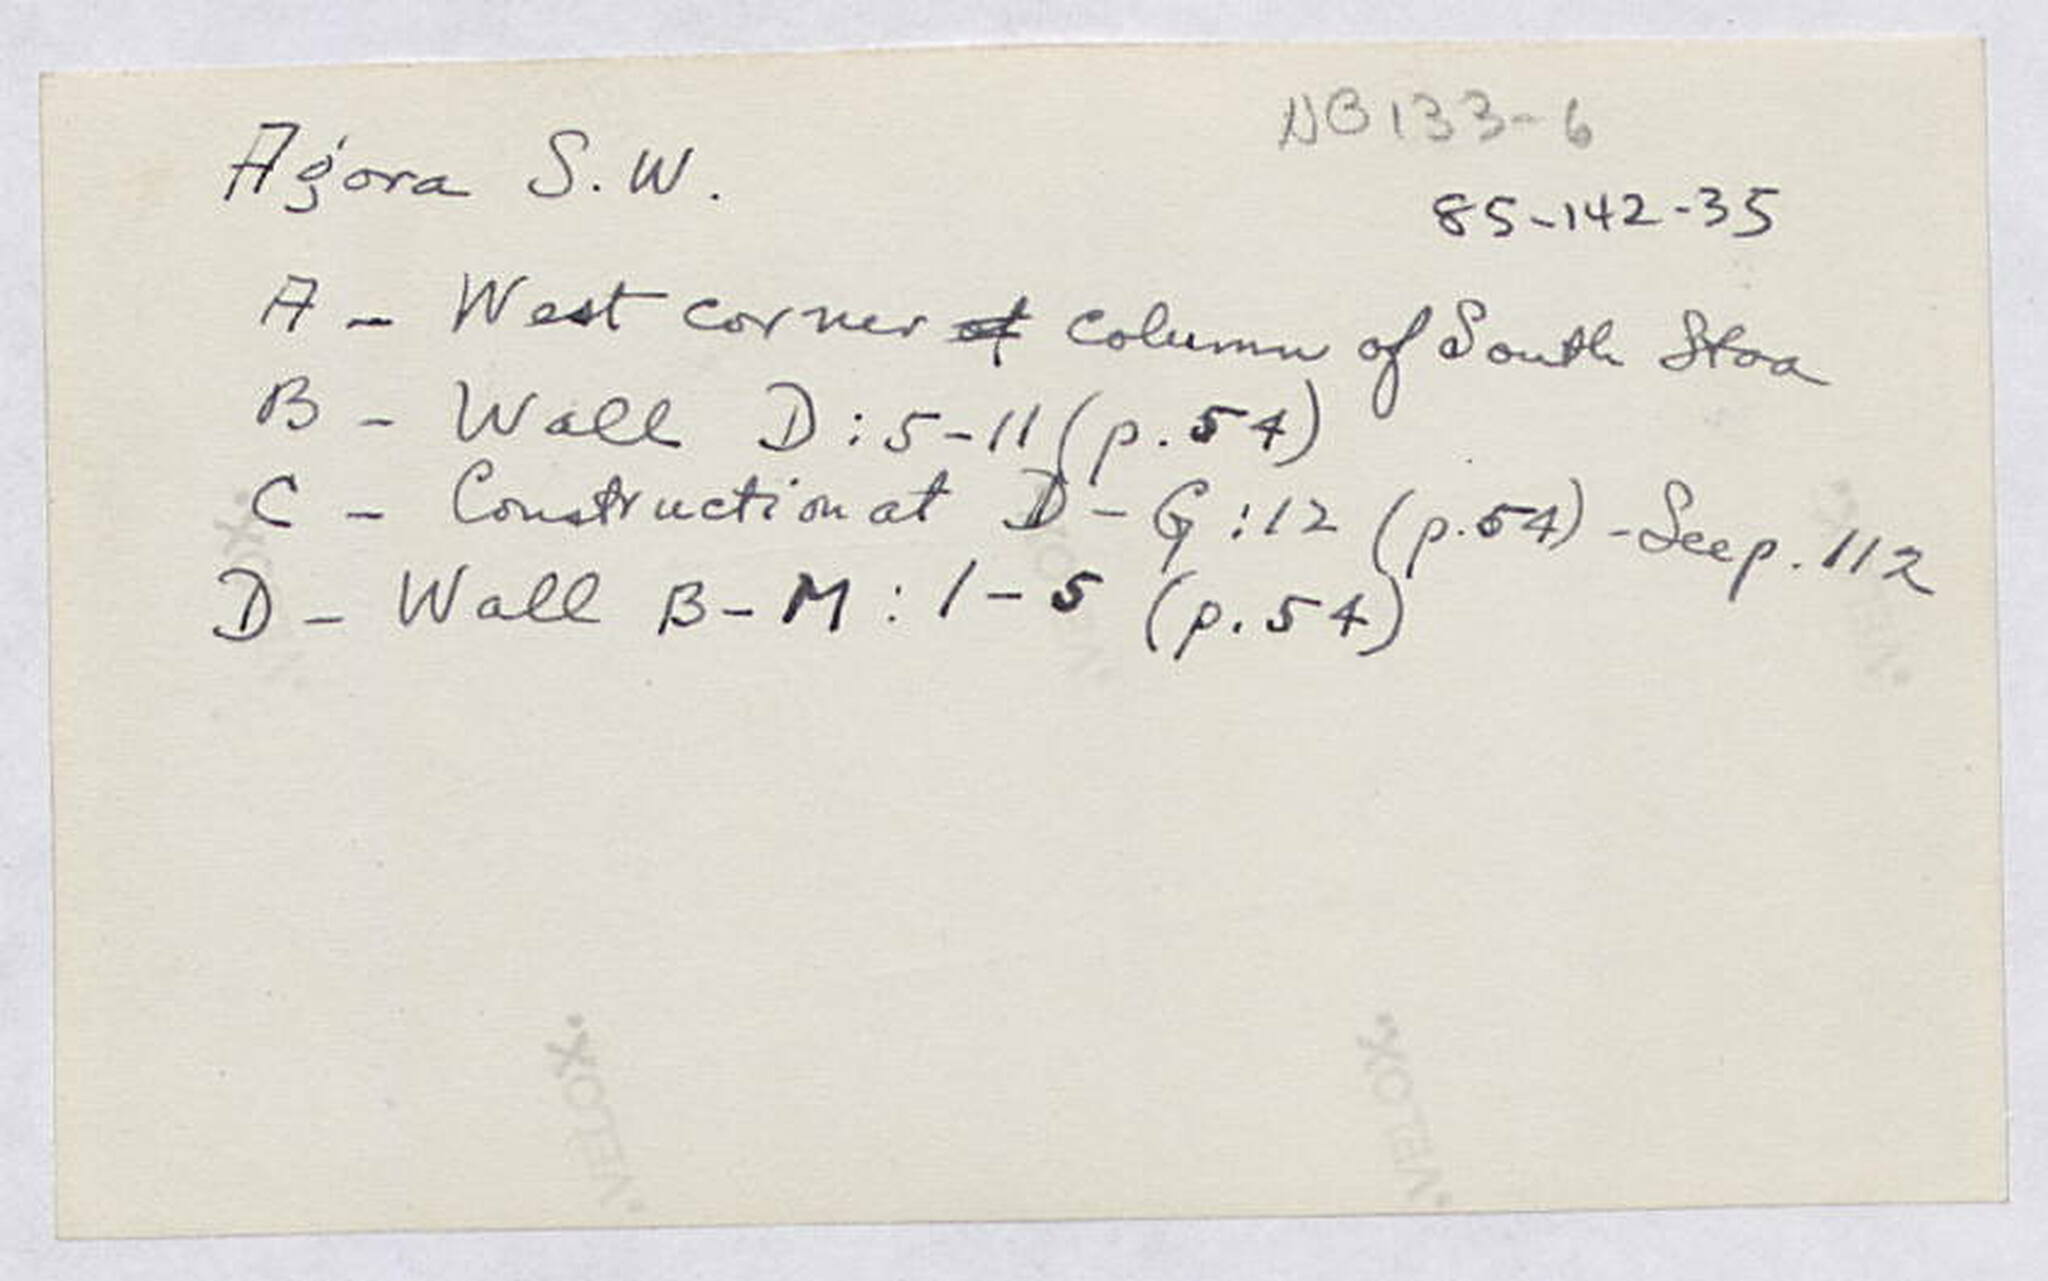 NB 133-6
Agora S. W.
85-142-35
A - West corner of column of South Stoa
B - Wall D: 5-11 (p. 54)
C - Construction at D - G: 12 (p. 54) - See p. 112
D - Wall B - M: 1 - 5 (p. 54)
VELOX
VELOX
VELOX
VELOX
VELOX